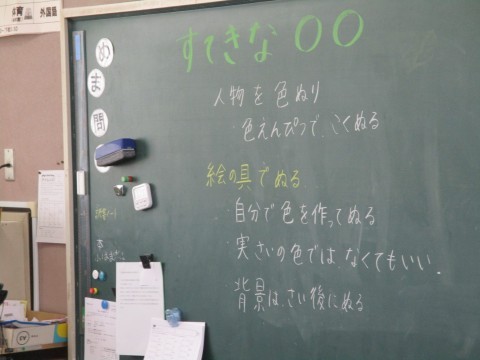 すてきな○○
人物を色ぬり
・色えんぴつで、こくぬる
絵の具でぬる
・自分で色を作ってぬる
・実さいの色では、なくてもいい。
背景は、さい後にぬる
め
ま
問
外国語